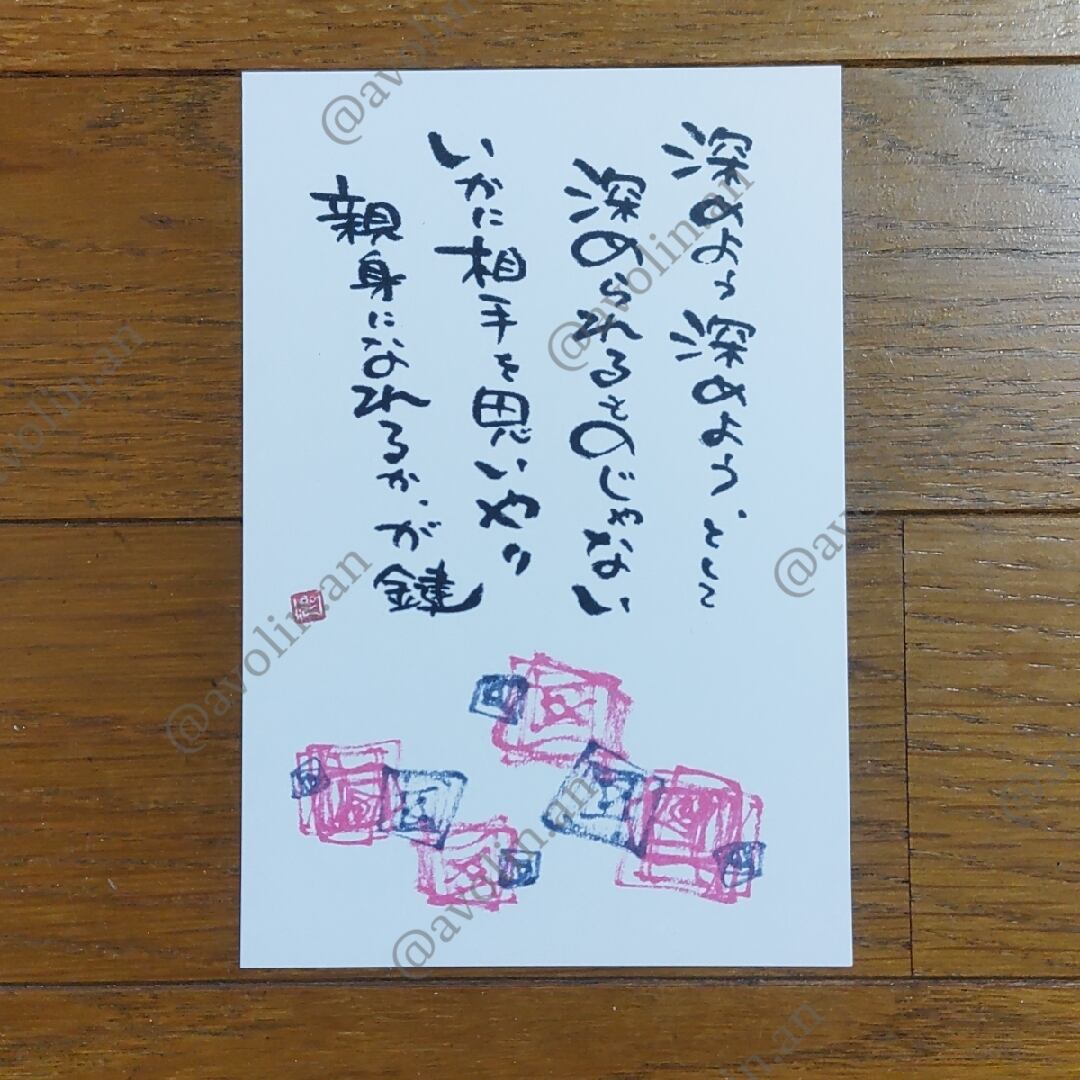 深めよう深めよう、として
深められるものじゃない
いかに相手を思いやり
親身になれるか、が鍵
@avolin.an
@avolin.an
@avolin.an
@avolin.an
@avolin.an